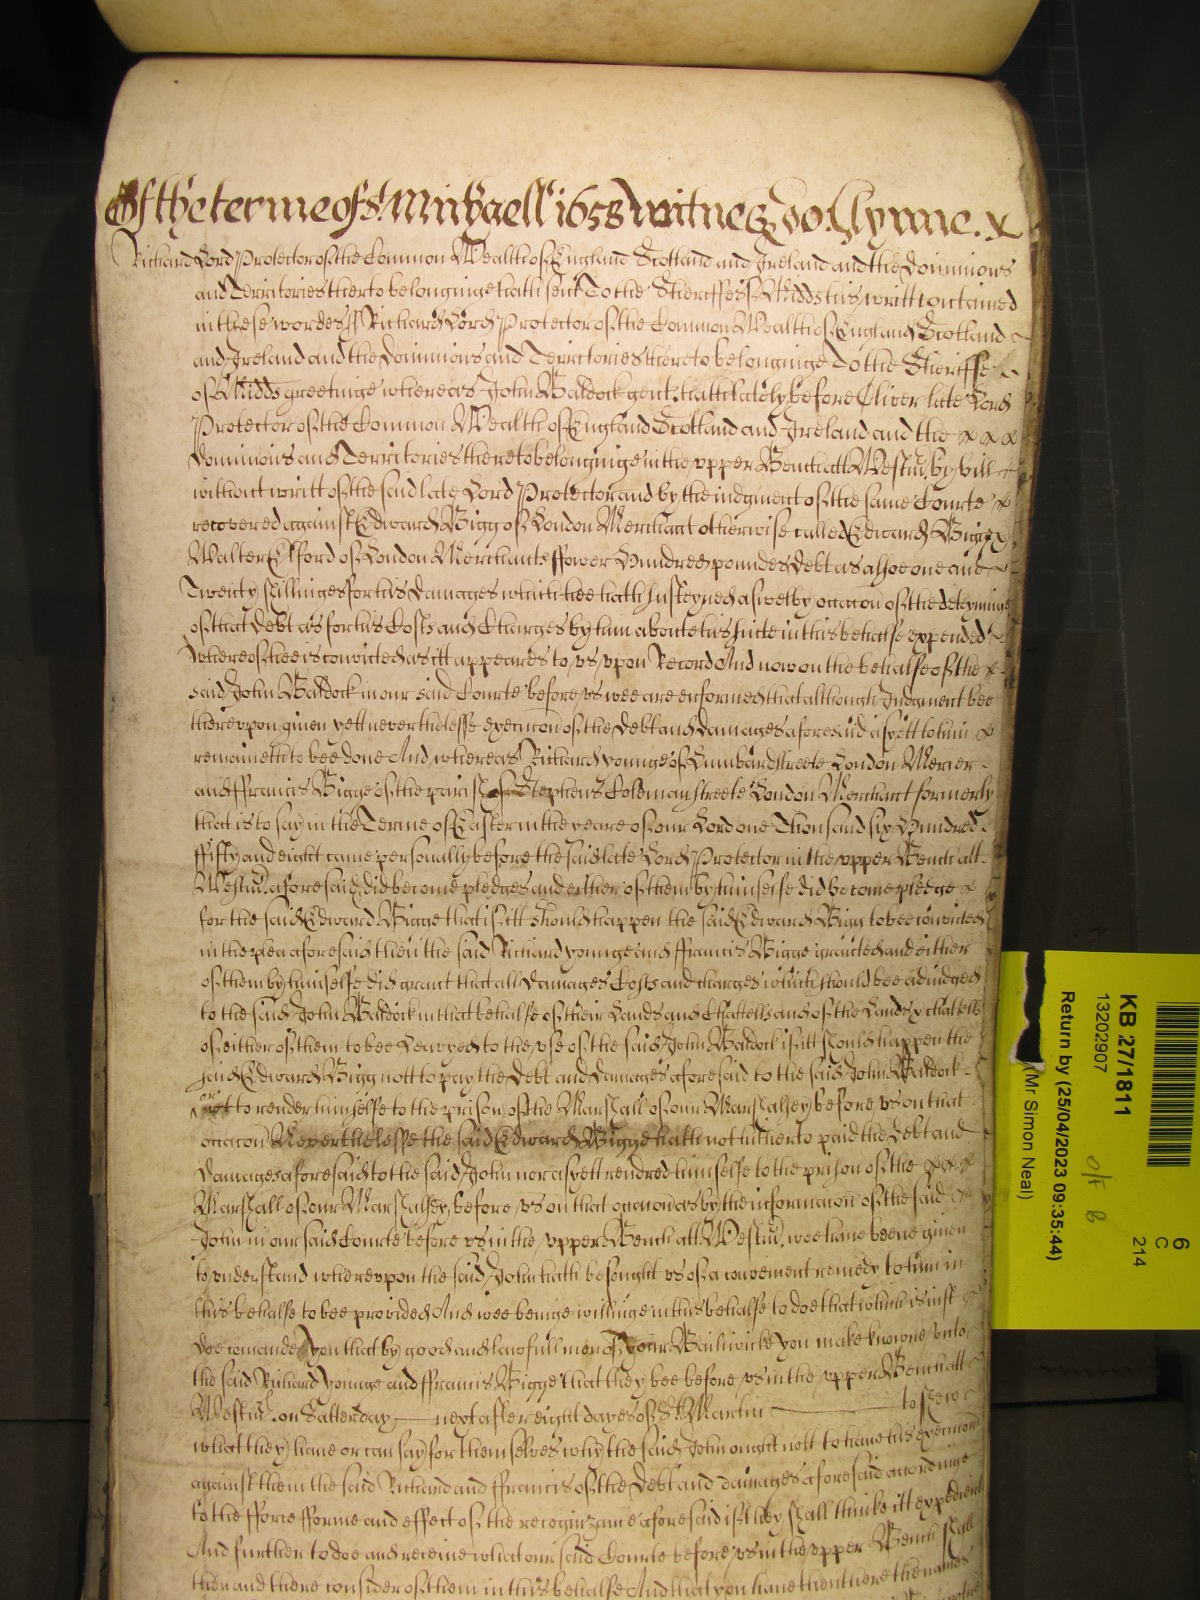 Of the terme of St. Michaell 1658 witnes Jo. Glynne. x
Richard Lord Protector of the Common Wealth of England Scotland and Ireland and the Dominions
and Territories therto belonginge hath sent To the Sherriffes of Midds his writt contained
in these wordes ss Richard Lord Protector of the Common Wealth of England Scotland
and Ireland and the Dominions and Territories thereto belonginge To the Sheriffe
of Midds greetinge whereas John Baldock gent. hath lately before Oliver late Lord
Protector of the Common Wealth of England Scotland and Ireland and the x x x
Dominions and Territories thereto belonginge in the upper Bench att Westm. by bill
without writt of the said late Lord Protector and by the iudgment of the same Courte x
recovered against Edward Bigg of London Merchant otherwise called Edward Bigg
Walter Elford of London Merchants ffower Hundred poundes Debt as alsoe one and
Twenty shillinges for his Damages which hee hath susteyned aswell by occacon of the deteyninge
of that Debt as for his Costs and Charges by him aboute his suite in this behalfe expended
Whereof hee is convicted as itt appeares to us upon Record And now on the behalfe of the x
said John Baldock in our said Courte before us wee are enformed that although Judgment bee
thereupon given yett neverthelesse execucon of the Debt and Damages aforesaid as yett to him x
remaineth to bee done And whereas Richard younge of Lumbardstreete London Mercer
and ffrancis Bigge of the parish of Stephens Colemanstreete London Merchant formerly
that is to say in the Terme of Easter in the yeare of our Lord one Thousand six Hundred
ffifty and eight came personally before the said late Lord Protector in the upper Bench att
Westm. aforesaid did become pledges and either of them by himselfe did become pledge x
for the said Edward Bigge that if itt should happen the said Edward Bigg to bee convicted
in the plea aforesaid then the said Richard younge and ffrancis Bigge graunted and either
of them by himselfe did grant that all Damages Costs and charges which should bee adiudged
to the said John Baldock in that behalfe of their Lands and Chattells and of the Lands & chattells
of either of them to bee Leavyed to the use of the said John Baldock if itt should happen the
said Edward Bigg nott to pay the Debt and Damages aforesaid to the said John Baldock
or
to render himselfe to the prison of the Marshall of our Marshalsey before us on that
occacon Neverthelesse the said Edward Bigge hath not hitherto paid the Debt and
Damages aforesaid to the said John nor as yett rendred himselfe to the prison of the x x x
Marshall of our Marshalsey before us on that occacon as by the informacon of the said
John in our said Courte before us in the upper Bench att Westm. wee have beene given
to understand whereupon the said John hath besought us of a convenient remedy to him in
this behalfe to bee provided And wee beinge willinge in this behalfe to doe that which is iust
doe comande you that by good and lawfull men of your Bailiwicke you make knowne unto
the said Richard younge and ffrancis Bigge that they bee before us in the upper Bench att
Westm. on Satterday next after eight dayes of St. Martin to shew
what they have or can say for themselves why the said John ought nott to have his execucon
against them the said Richard and ffrancis of the Debt and damages aforesaid accordinge
to the fforce fforme and effect of the recognizance aforesaid if they shall thinke itt expedient
And further to doe and receive what our said Courte before us in the upper Bench shall
then and there consider of them in this behalfe And that you have then there the names
KB 27/1811
13202907
Return by (25/04/2023 09:35:44)
(Mr Simon Neal)
6
C
214